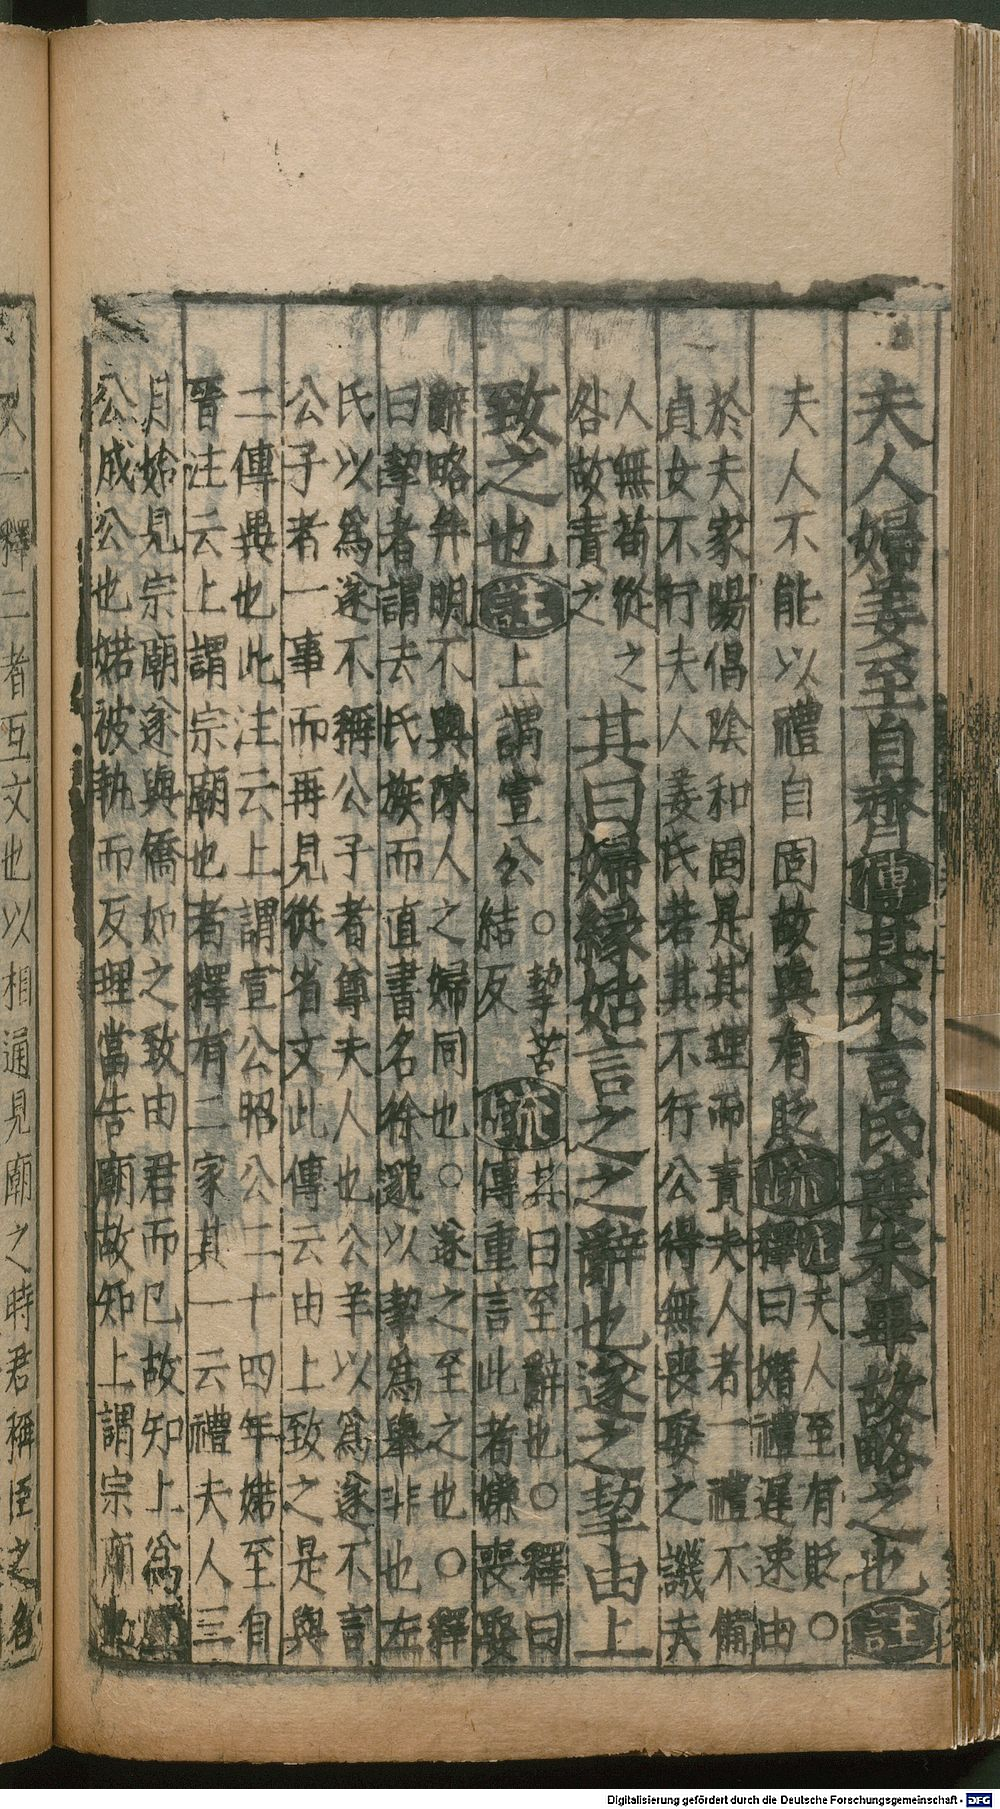 夫人婦姜至自齊傳其不言氏喪未畢故略之也註
夫人不能以禮自固故與有貶疏註夫人至有貶○
釋曰婚禮遲速由
於夫家陽倡陰和固是其理而責夫人者一禮不備
貞女不行夫人姜氏若其不行公得無喪娶之譏夫
人無苟從之
咎故責之
其曰婦縁姑言之之辭也遂之挈由上
致之也註上謂宣公○挈苦
結反疏其曰至辭也○釋曰
傳重言此者嫌喪娶
辭略弁明不與陳人之婦同也○遂之至之也○釋
曰挈者謂去氏族而直書名徐邈以挈為舉非也左
氏以為遂不稱公子者尊夫人也公羊以為遂不言
公子者一事而再見從省文此傳云由上致之是與
二傳異也此注云上謂宣公昭公二十四年婼至自
晉注云上謂宗廟也者釋有二家其一云禮夫人三
月始見宗廟遂與僑如之致由君而已故知上為
公成公也婼被執而反理當告廟故知上謂宗廟
又一釋二者互文也以相通見廟之時君稱臣之名
Digitalisierung gefördert durch die Deutsche Forschungsgemeinschaft - DFG